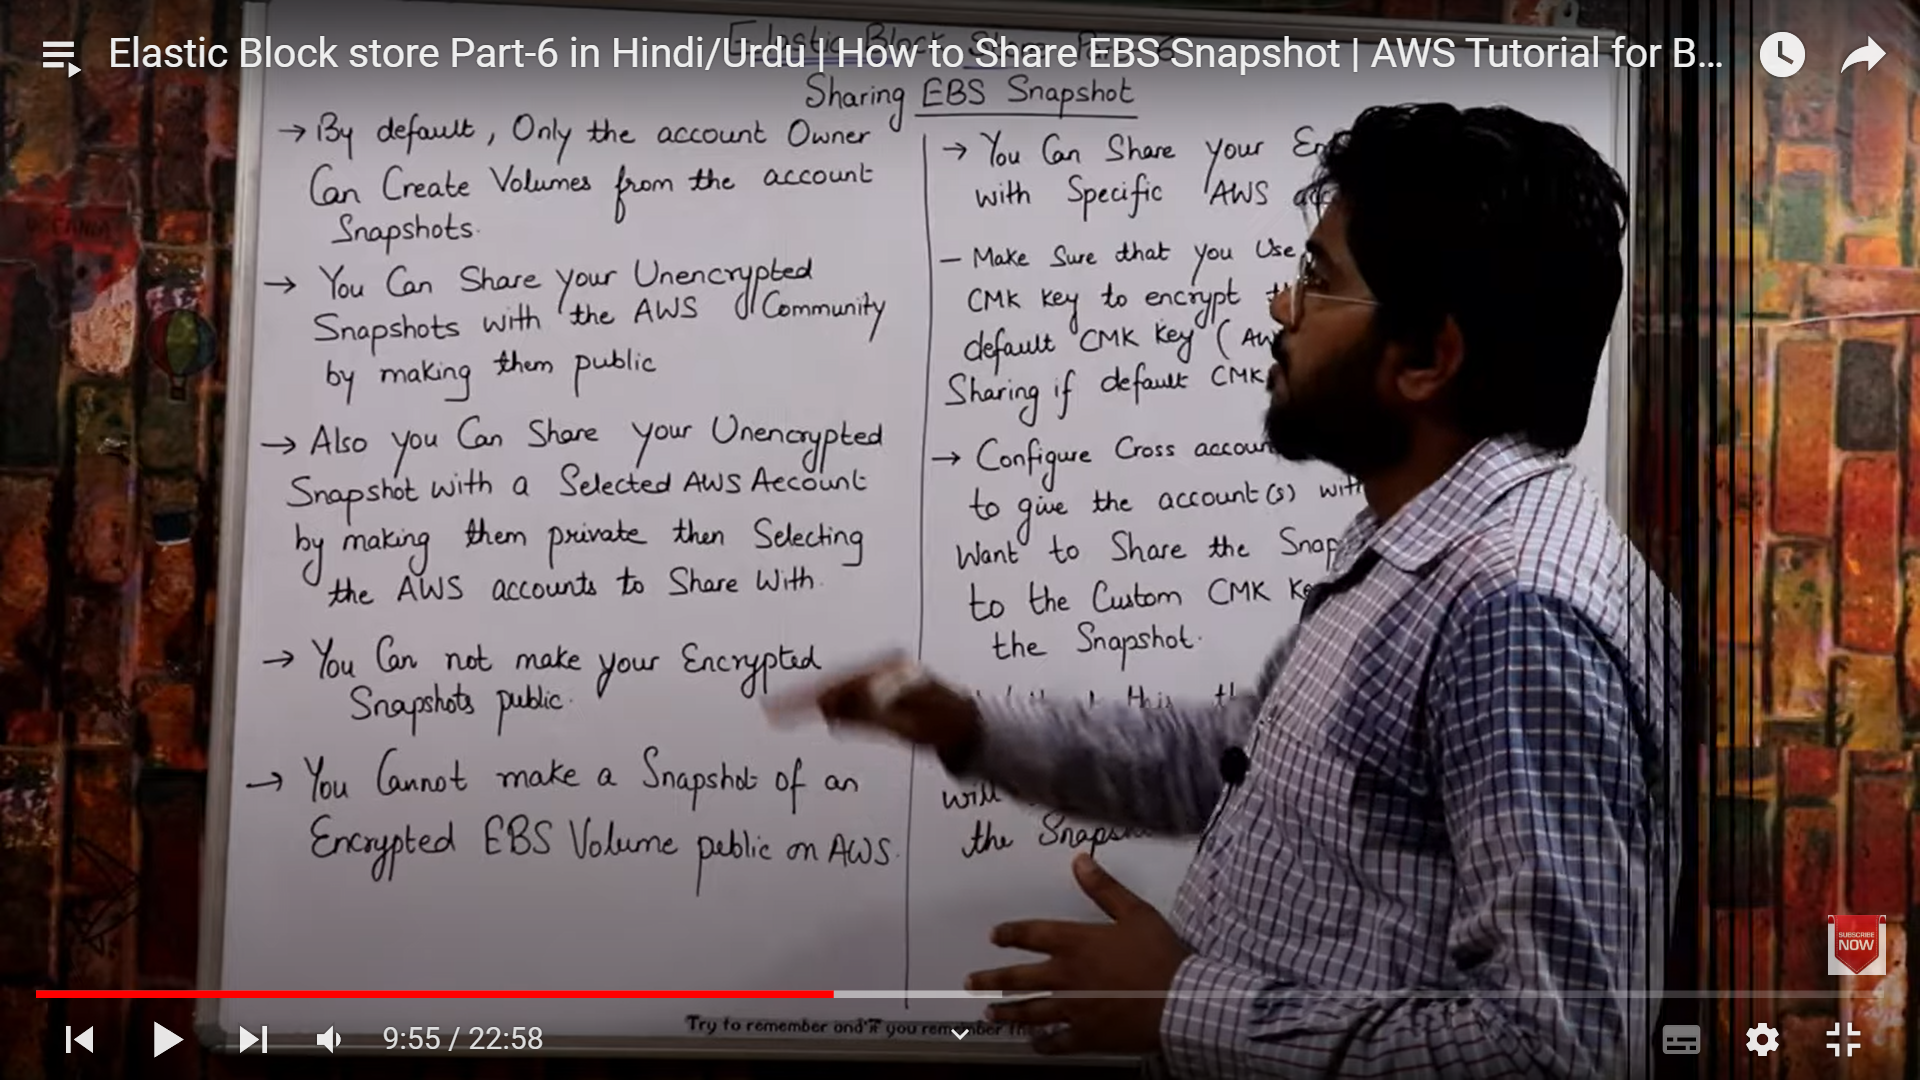 Elastic Block store Part-6 in Hindi/Urdu | How to Share EBS Snapshot | AWS Tutorial for B...
Sharing EBS Snapshot
→ By default, Only the account Owner
Can Create Volumes from the account
Snapshots.
→ You Can Share your Unencrypted
Snapshots with the AWS Community
by making them public
→ Also you Can Share your Unencrypted
Snapshot with a Selected AWS Account
by making them private then Selecting
the AWS accounts to Share With.
→ You Can not make your Encrypted
Snapshots public.
→ You Cannot make a Snapshot of an
Encrypted EBS Volume public on AWS.
→ You Can Share your
with Specific AWS
– Make Sure that you Use
CMK key to encrypt
default CMK key (
Sharing if default CMK
→ Configure Cross
to give the account(s)
Want to Share the
to the Custom CMK
the Snapshot.
this
will
the
Try to remember and if you remember
SUBSCRIBE
NOW
9:55 / 22:58